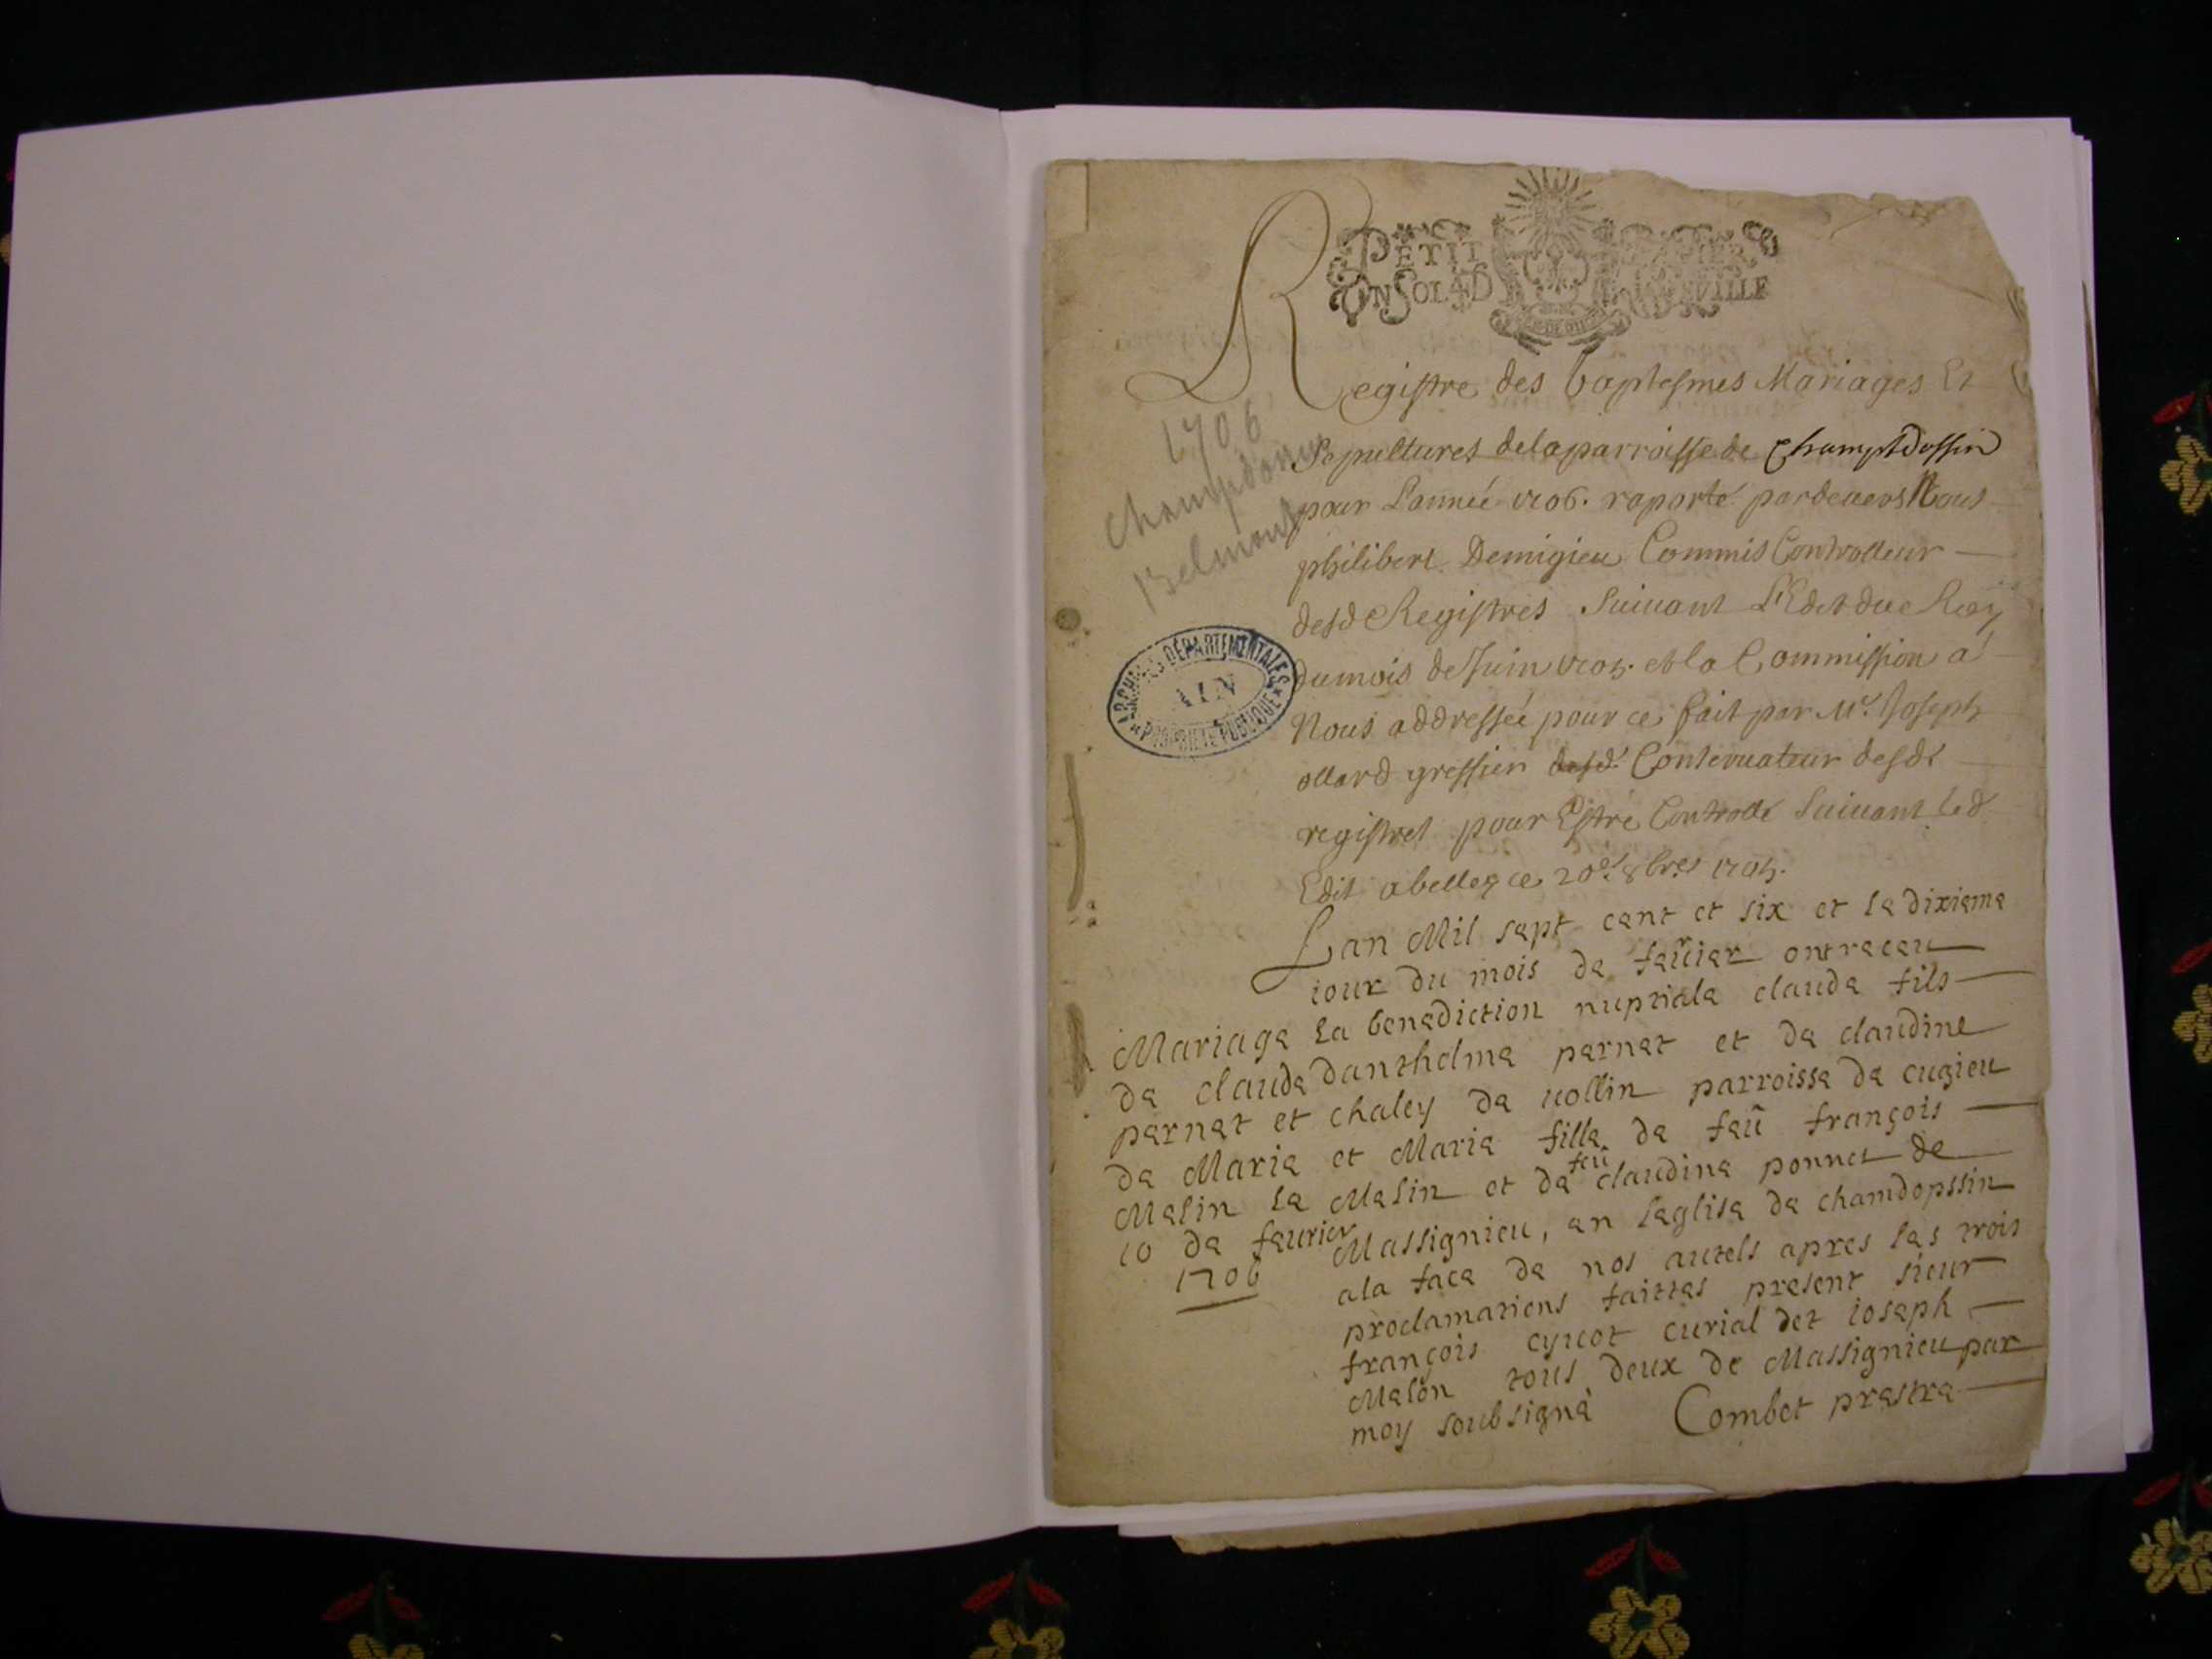 PETIT PAPIER
UN SOL 4 D LA FEUILLE
Registre des baptesmes Mariages Et
1706
Sepultures de la parroisse de Champtdossin
pour Lannée 1706. raporté pardevers Nous
Belmont
philibert Demigieu Commis Controlleur
desd Registres Suiuant L'Edit du Roy
ARCHIVES DÉPARTEMENTALES
AIN
PROPRIÉTÉ PUBLIQUE
du mois de Juin 1705. et la Commission a
Nous addressée pour ce fait par Mr. Joseph
ollard greffier desd. Conseruateur desd
registres pour Estre Controllé Suiuant led
Edit a belley ce 20e. 8bres 1705.
Lan Mil sept cent et six et le dixieme
iour du mois de feurier ont receu
Mariage la benediction nuptiale claude fils
de claude danthelme pernet et de claudine
pernet et chaley de uollin parroisse de cugieu
de Marie et Marie fille de feu françois
Melin le Melin et de feu claudine ponnet de
10 de feurier
1706
Massignieu, en leglise de chamdopssin
a la face de nos autels apres les trois
proclamations faittes present sieur
françois cyuot curial det ioseph
Melon tous deux de Massignieu par
moy soubsigné Combet prestre